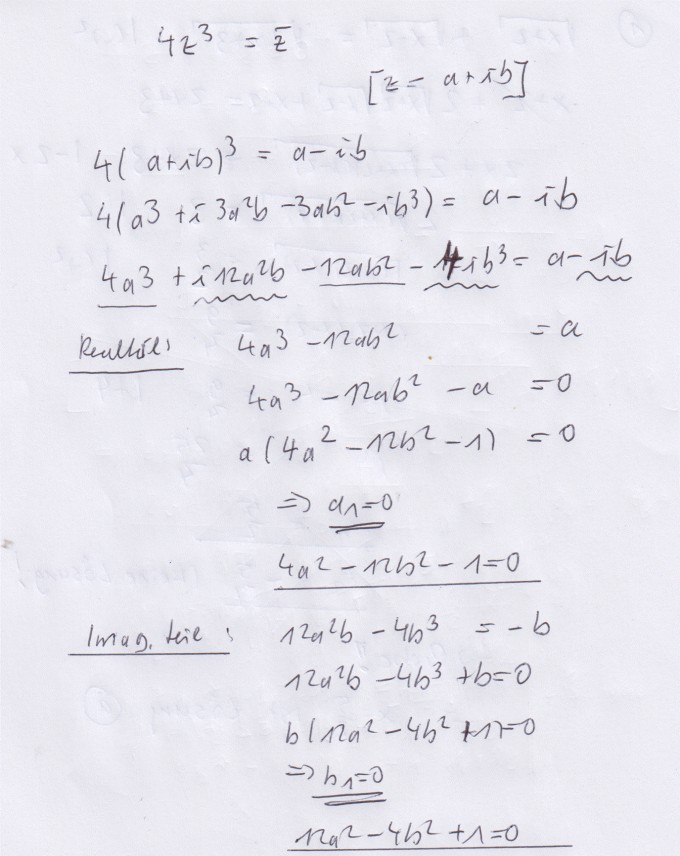 4z³ = z̅
[z = a+ib]
4(a+ib)³ = a-ib
4(a³ + i3a²b -3ab² -ib³) = a-ib
4a³ + i12a²b -12ab² - 4ib³ = a-ib
Realteil: 4a³ -12ab² = a
4a³ -12ab² -a =0
a(4a² -12b² -1) =0
=> a₁=0
4a² -12b² -1=0
Imag. teil: 12a²b -4b³ = -b
12a²b -4b³ +b=0
b(12a² -4b² +1)=0
=> b₁=0
12a² -4b² +1=0